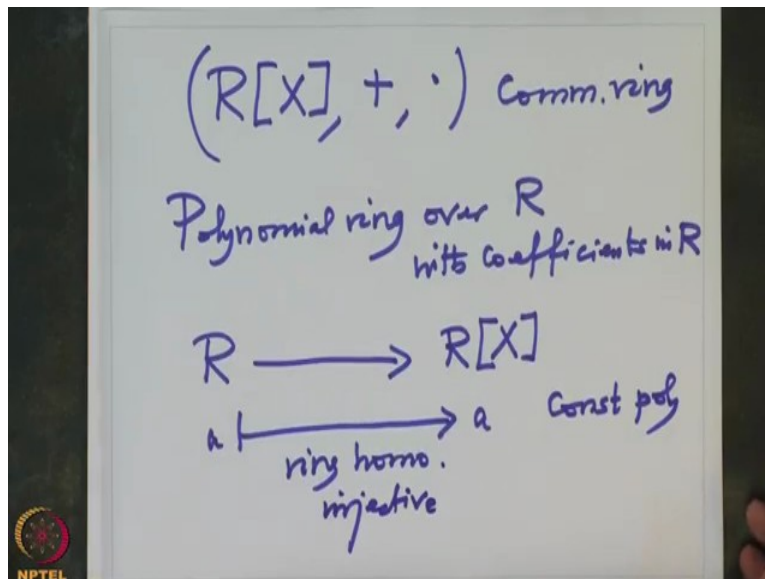 (R[X], +, ·) Comm. ring
Polynomial ring over R
with coefficients in R
R ⟶ R[X]
a ⟼ a Const poly
ring homo.
injective
NPTEL